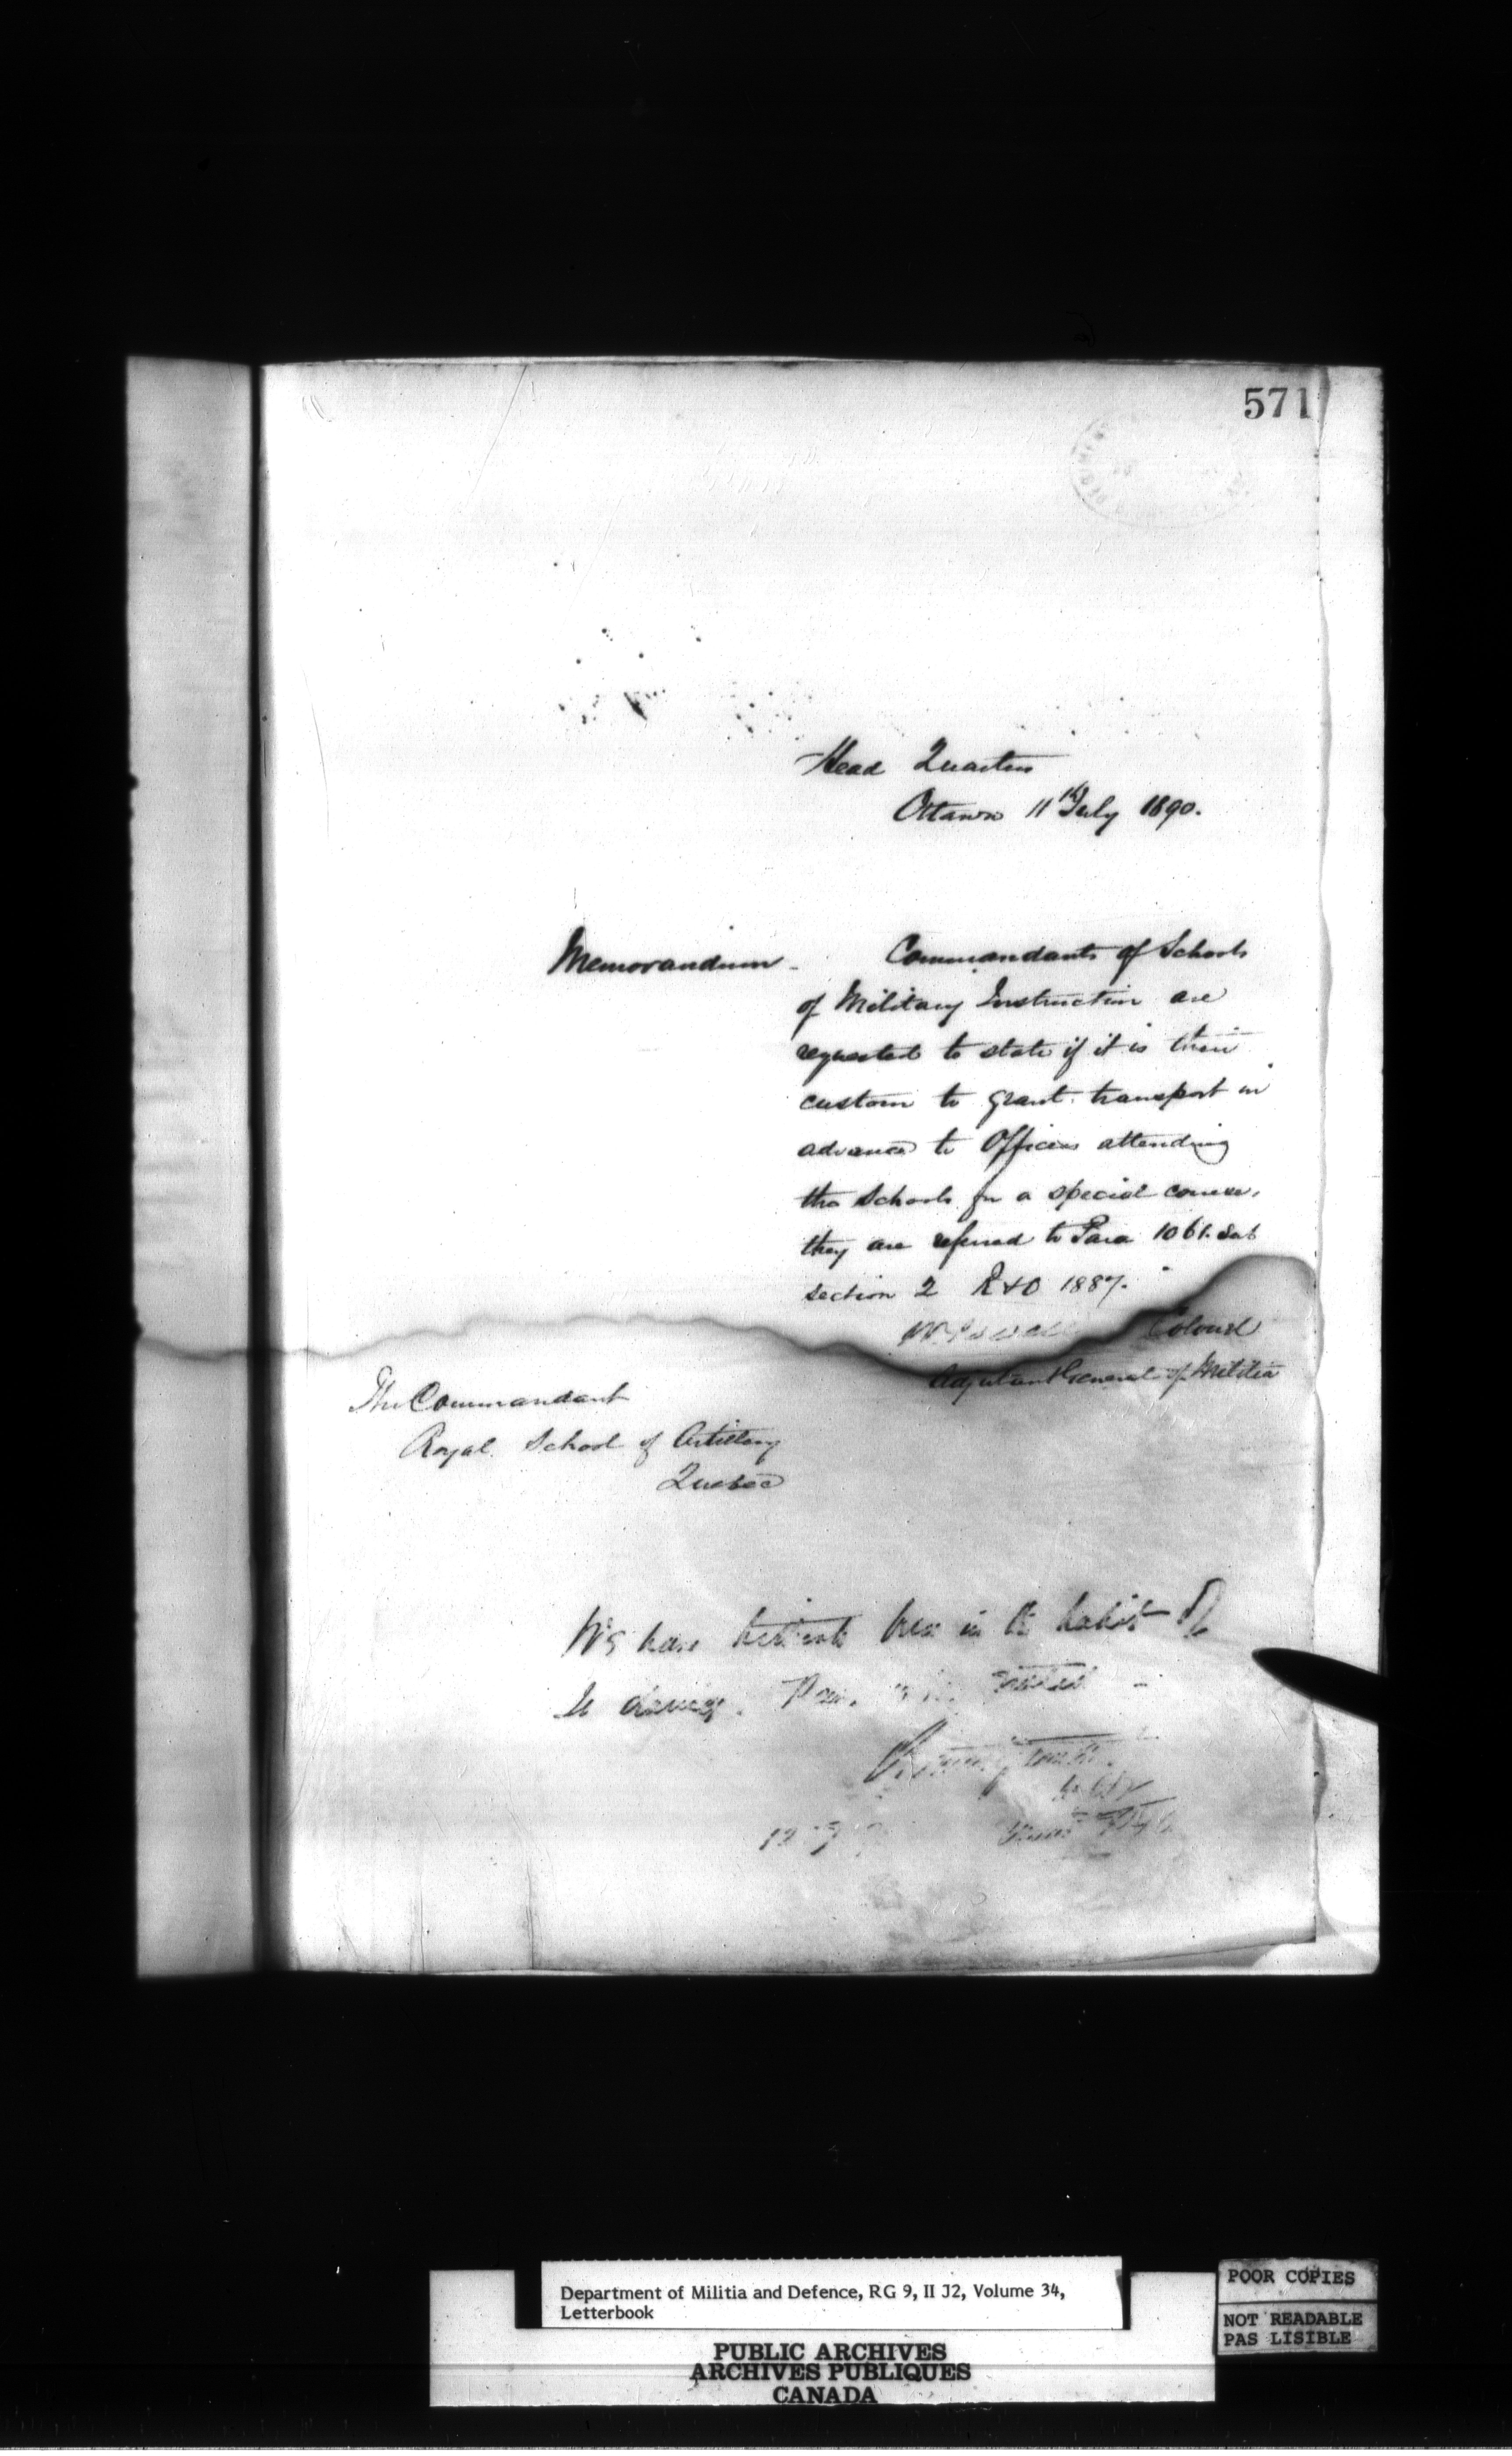 571
Head Quarters
Ottawa 11th July 1890.
Memorandum - Commandants of Schools
of Military Instruction are
requested to state if it is their
custom to grant transport in
advance to Officers attending
the Schools for a special course,
they are referred to Para 1061. Sub
section 2 R&O 1887.
Colonel
Adjutant General of Militia
The Commandant
Royal School of Artillery
Quebec
We have hitherto been in the habit of
12
Department of Militia and Defence, RG 9, II J2, Volume 34,
Letterbook
PUBLIC ARCHIVES
ARCHIVES PUBLIQUES
CANADA
POOR COPIES
NOT READABLE
PAS LISIBLE